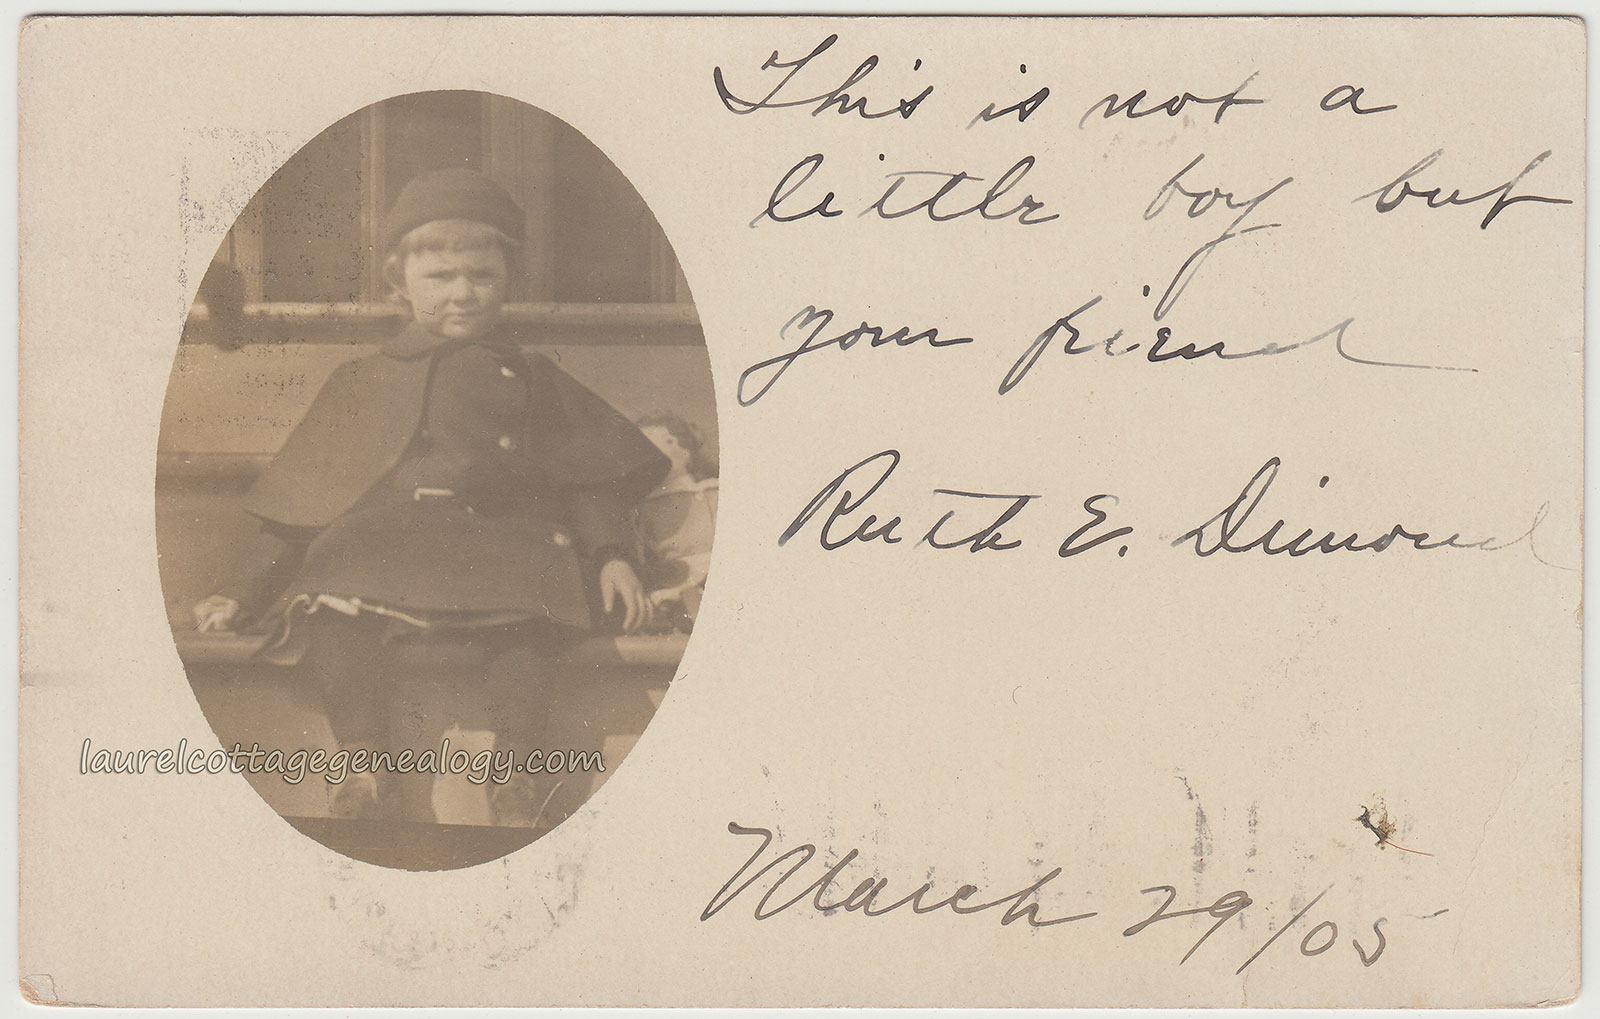 This is not a
little boy but
your friend
Ruth E. Dimond
March 29/05
laurelcottagegenealogy.com